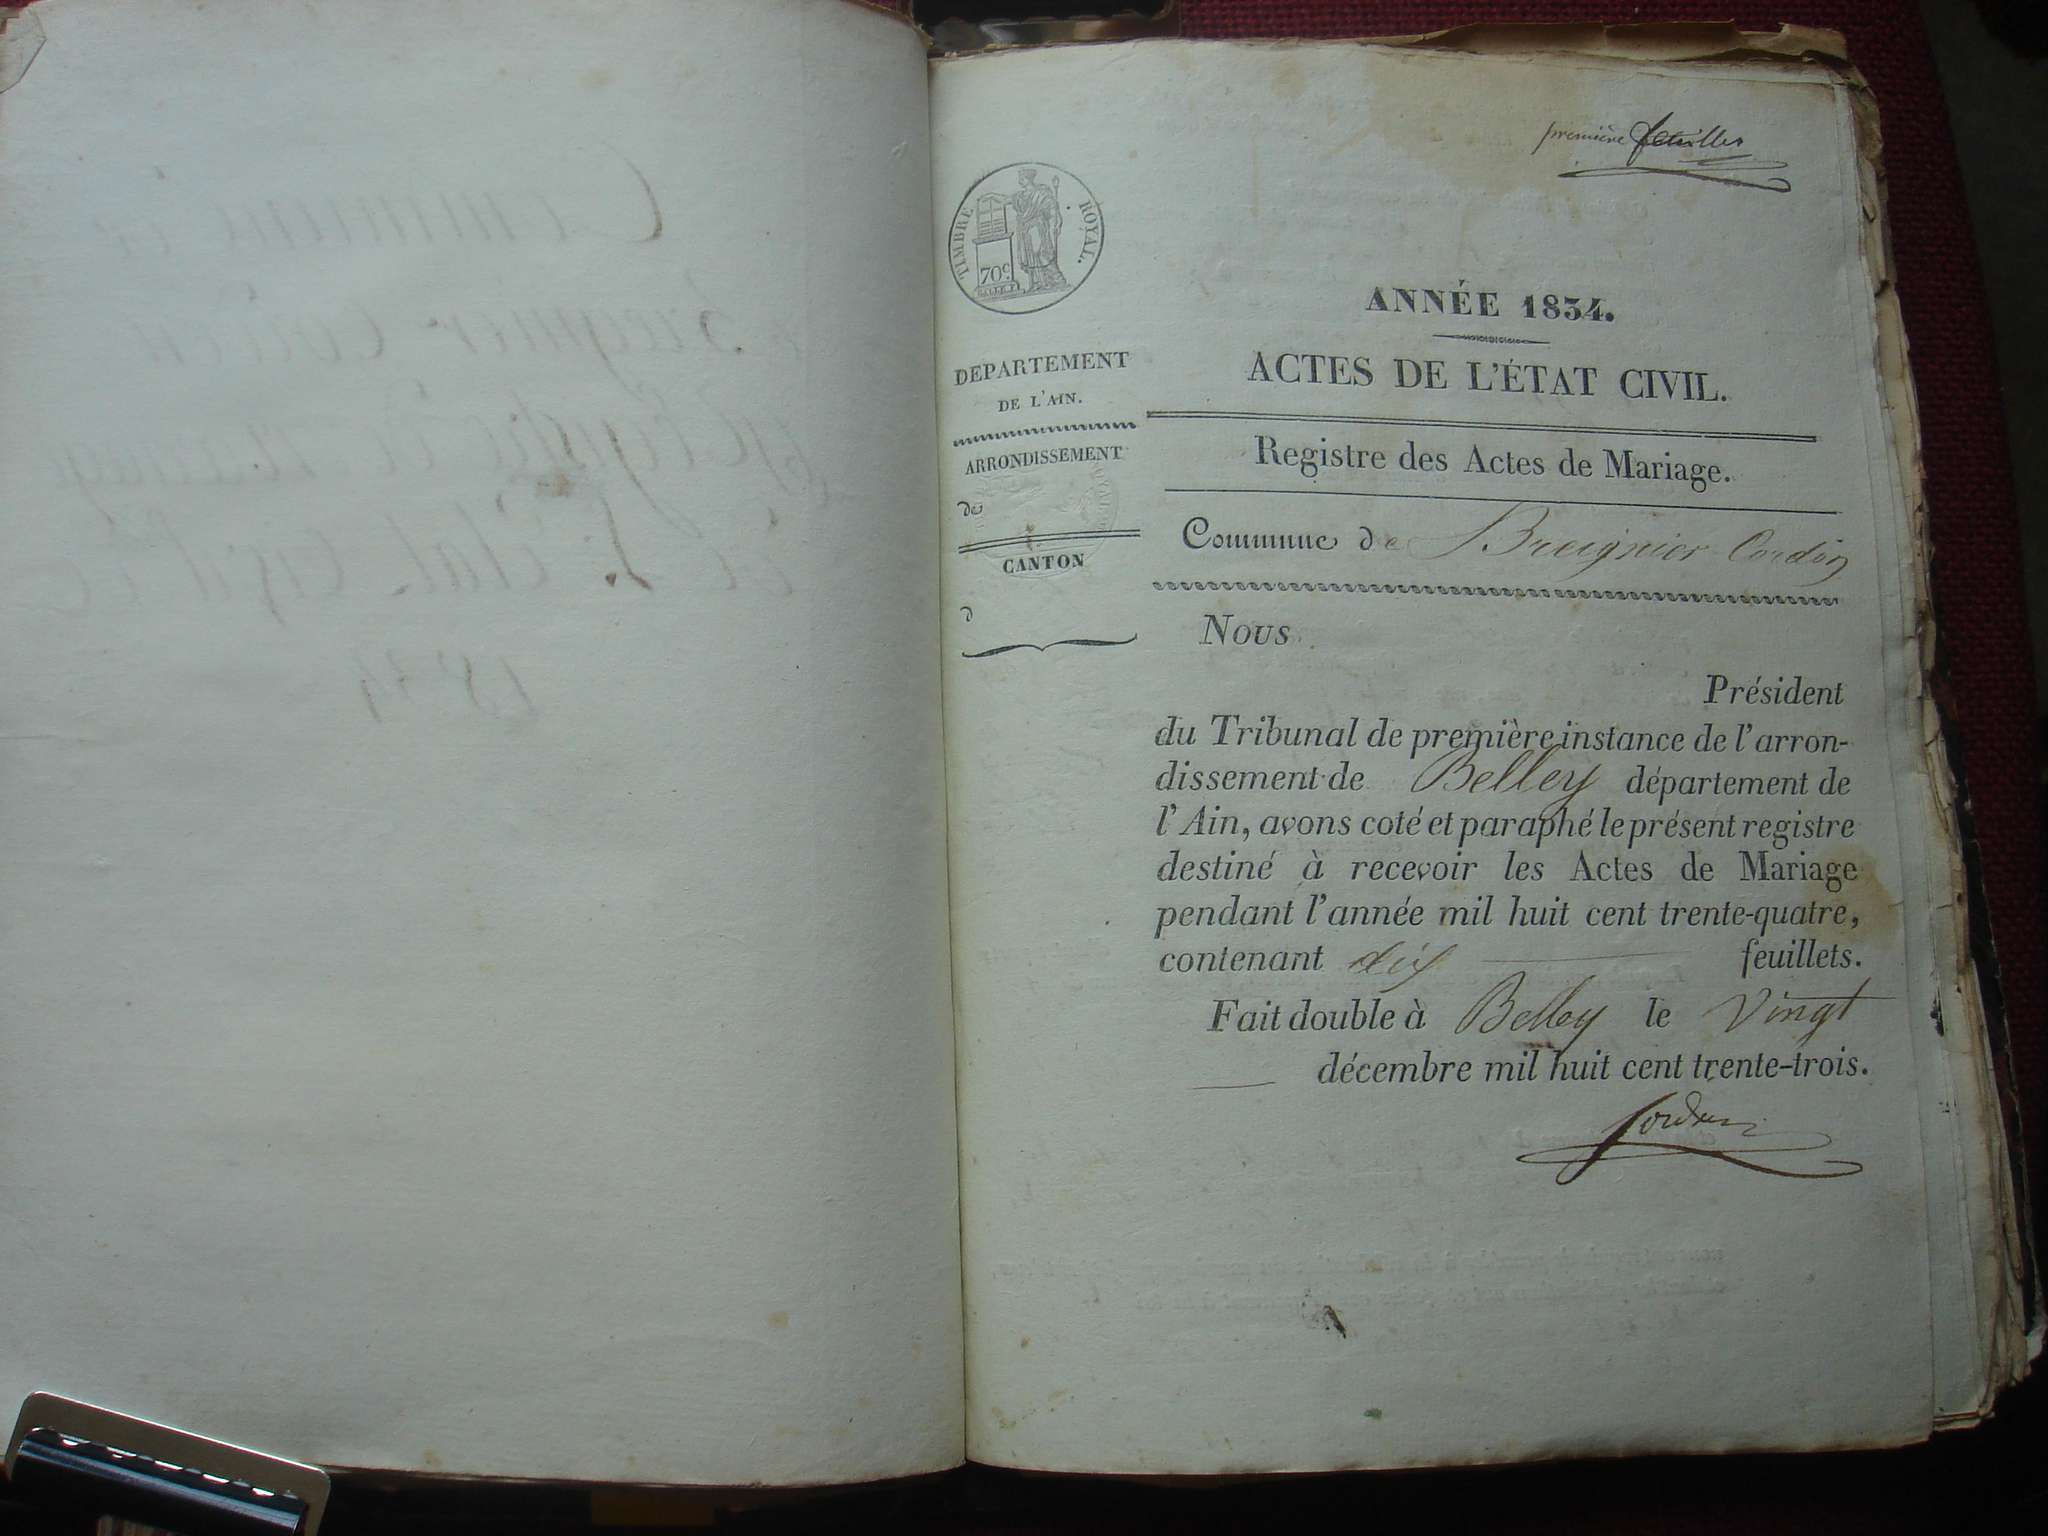 première feuillet
TIMBRE ROYAL.
70c
ANNÉE 1834.
ACTES DE L'ÉTAT CIVIL.
DEPARTEMENT
DE L'AIN.
ARRONDISSEMENT
de
CANTON
d
Registre des Actes de Mariage.
Commune de Bregnier Cordon
Nous
Président
du Tribunal de première instance de l'arron-
dissement de Belley département de
l'Ain, avons coté et paraphé le présent registre
destiné à recevoir les Actes de Mariage
pendant l'année mil huit cent trente-quatre,
contenant dix feuillets.
Fait double à Belley le Vingt
décembre mil huit cent trente-trois.